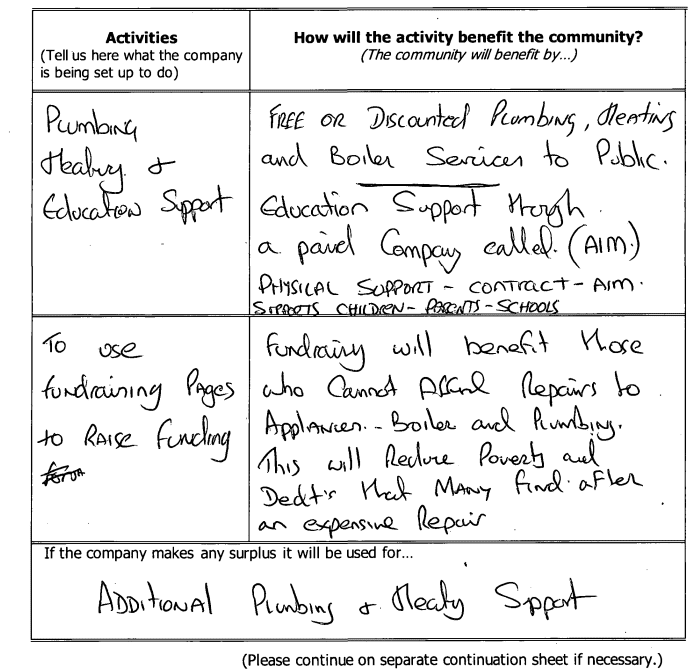 Activities
(Tell us here what the company
is being set up to do)
How will the activity benefit the community?
(The community will benefit by...)
Plumbing
Heating &
Education Support
FREE OR Discounted Plumbing, Heating
and Boiler Services to Public.
Education Support through
a paired Company called. (AIM.)
PHYSICAL SUPPORT - CONTRACT - AIM.
SUPPORTS CHILDREN - PARENTS - SCHOOLS
To use
fundraising Pages
to RAISE funding
Fundraising will benefit those
who Cannot Afford Repairs to
Appliances. - Boiler and Plumbing.
This will Reduce Poverty and
Dedt's that MANY find after
an expensive Repair
If the company makes any surplus it will be used for...
ADDITIONAL Plumbing & Heating Support
(Please continue on separate continuation sheet if necessary.)